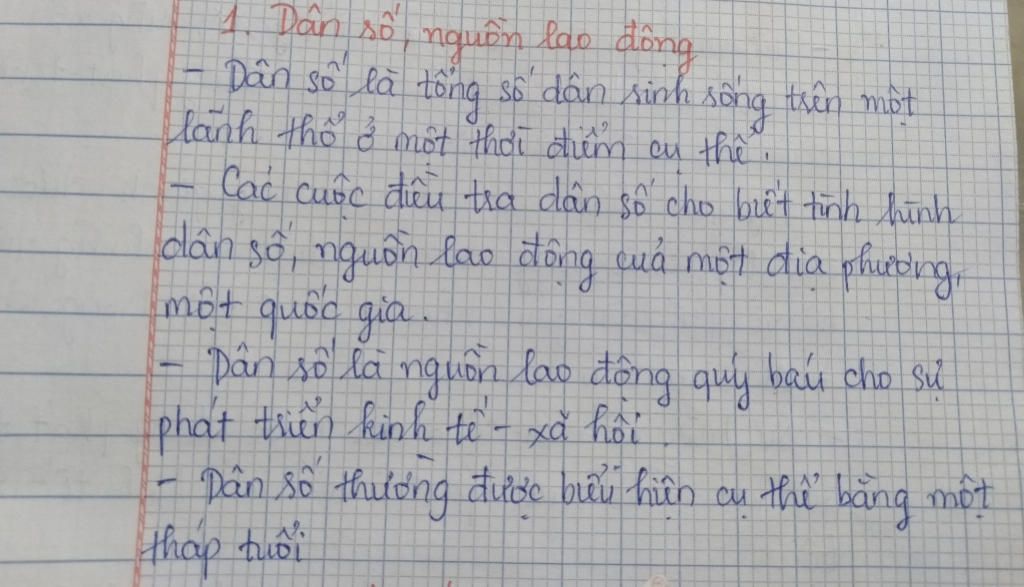 1. Dân số, nguồn lao động
- Dân số là tổng số dân sinh sống trên một
lãnh thổ ở một thời điểm cụ thể.
- Các cuộc điều tra dân số cho biết tình hình
dân số, nguồn lao động của một địa phương,
một quốc gia.
- Dân số là nguồn lao động quý báu cho sự
phát triển kinh tế - xã hội.
- Dân số thường được biểu hiện cụ thể bằng một
tháp tuổi